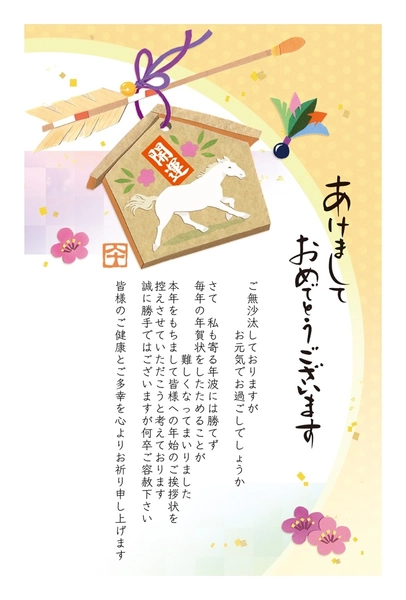 あけまして
おめでとうございます
開運
ご無沙汰しておりますが
お元気でお過ごしでしょうか
さて　私も寄る年波には勝てず
毎年の年賀状をしたためることが
難しくなってまいりました
本年をもちまして皆様への年始のご挨拶状を
控えさせていただこうと考えております
誠に勝手ではございますが何卒ご容赦下さい
皆様のご健康とご多幸を心よりお祈り申し上げます